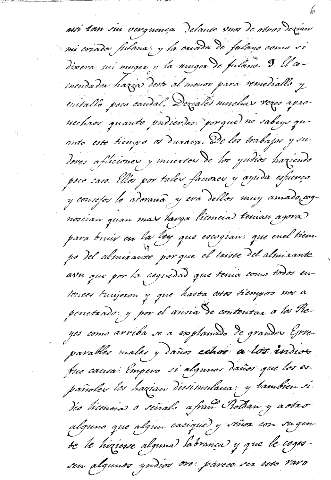 6
assi tan sin verguença delante unos de otros dezian
mi criada fulana: y la criada de fulano como si
dixera mi muger, y la muger de fulano. 9 El co-
mendador hazia desto al menor para remediallo y
evitallo poco caudal. Deziales muchas vezes apro-
vechaos quanto pudierdes: porque no sabeys qu-
anto este tiempo os durara. De los trabajos y su-
dores afliciones y muertes de los yndios haziendo
poco caso. Ellos por tales favores y ayuda esfuerço
y consejos lo adoravan, y era dellos muy amado cog-
noscian quan mas larga licencia tenian agora
para bivir en la ley que escogian: que en el tiem-
po del almirante porque el tarde del almirante
aun que por la ceguedad que tenia como todos en-
tonces tuvieron y que hasta estos tiempos no a
penetrado: y por el ansia de contentar a los Re-
yes como arriba se a explanado de grandes Erre-
parables males y daños echos a los indios
fue causa: Empero si algunos daños que los es-
pañoles les hazian dissimulava: y tambien si
dio licencia o señalo a francisco Roldan y a otros
alguno que algun casique y señor con su gen-
te le hiziese alguna labrança y que le coges-
sen algunos yndios oro: parece ser esto raro